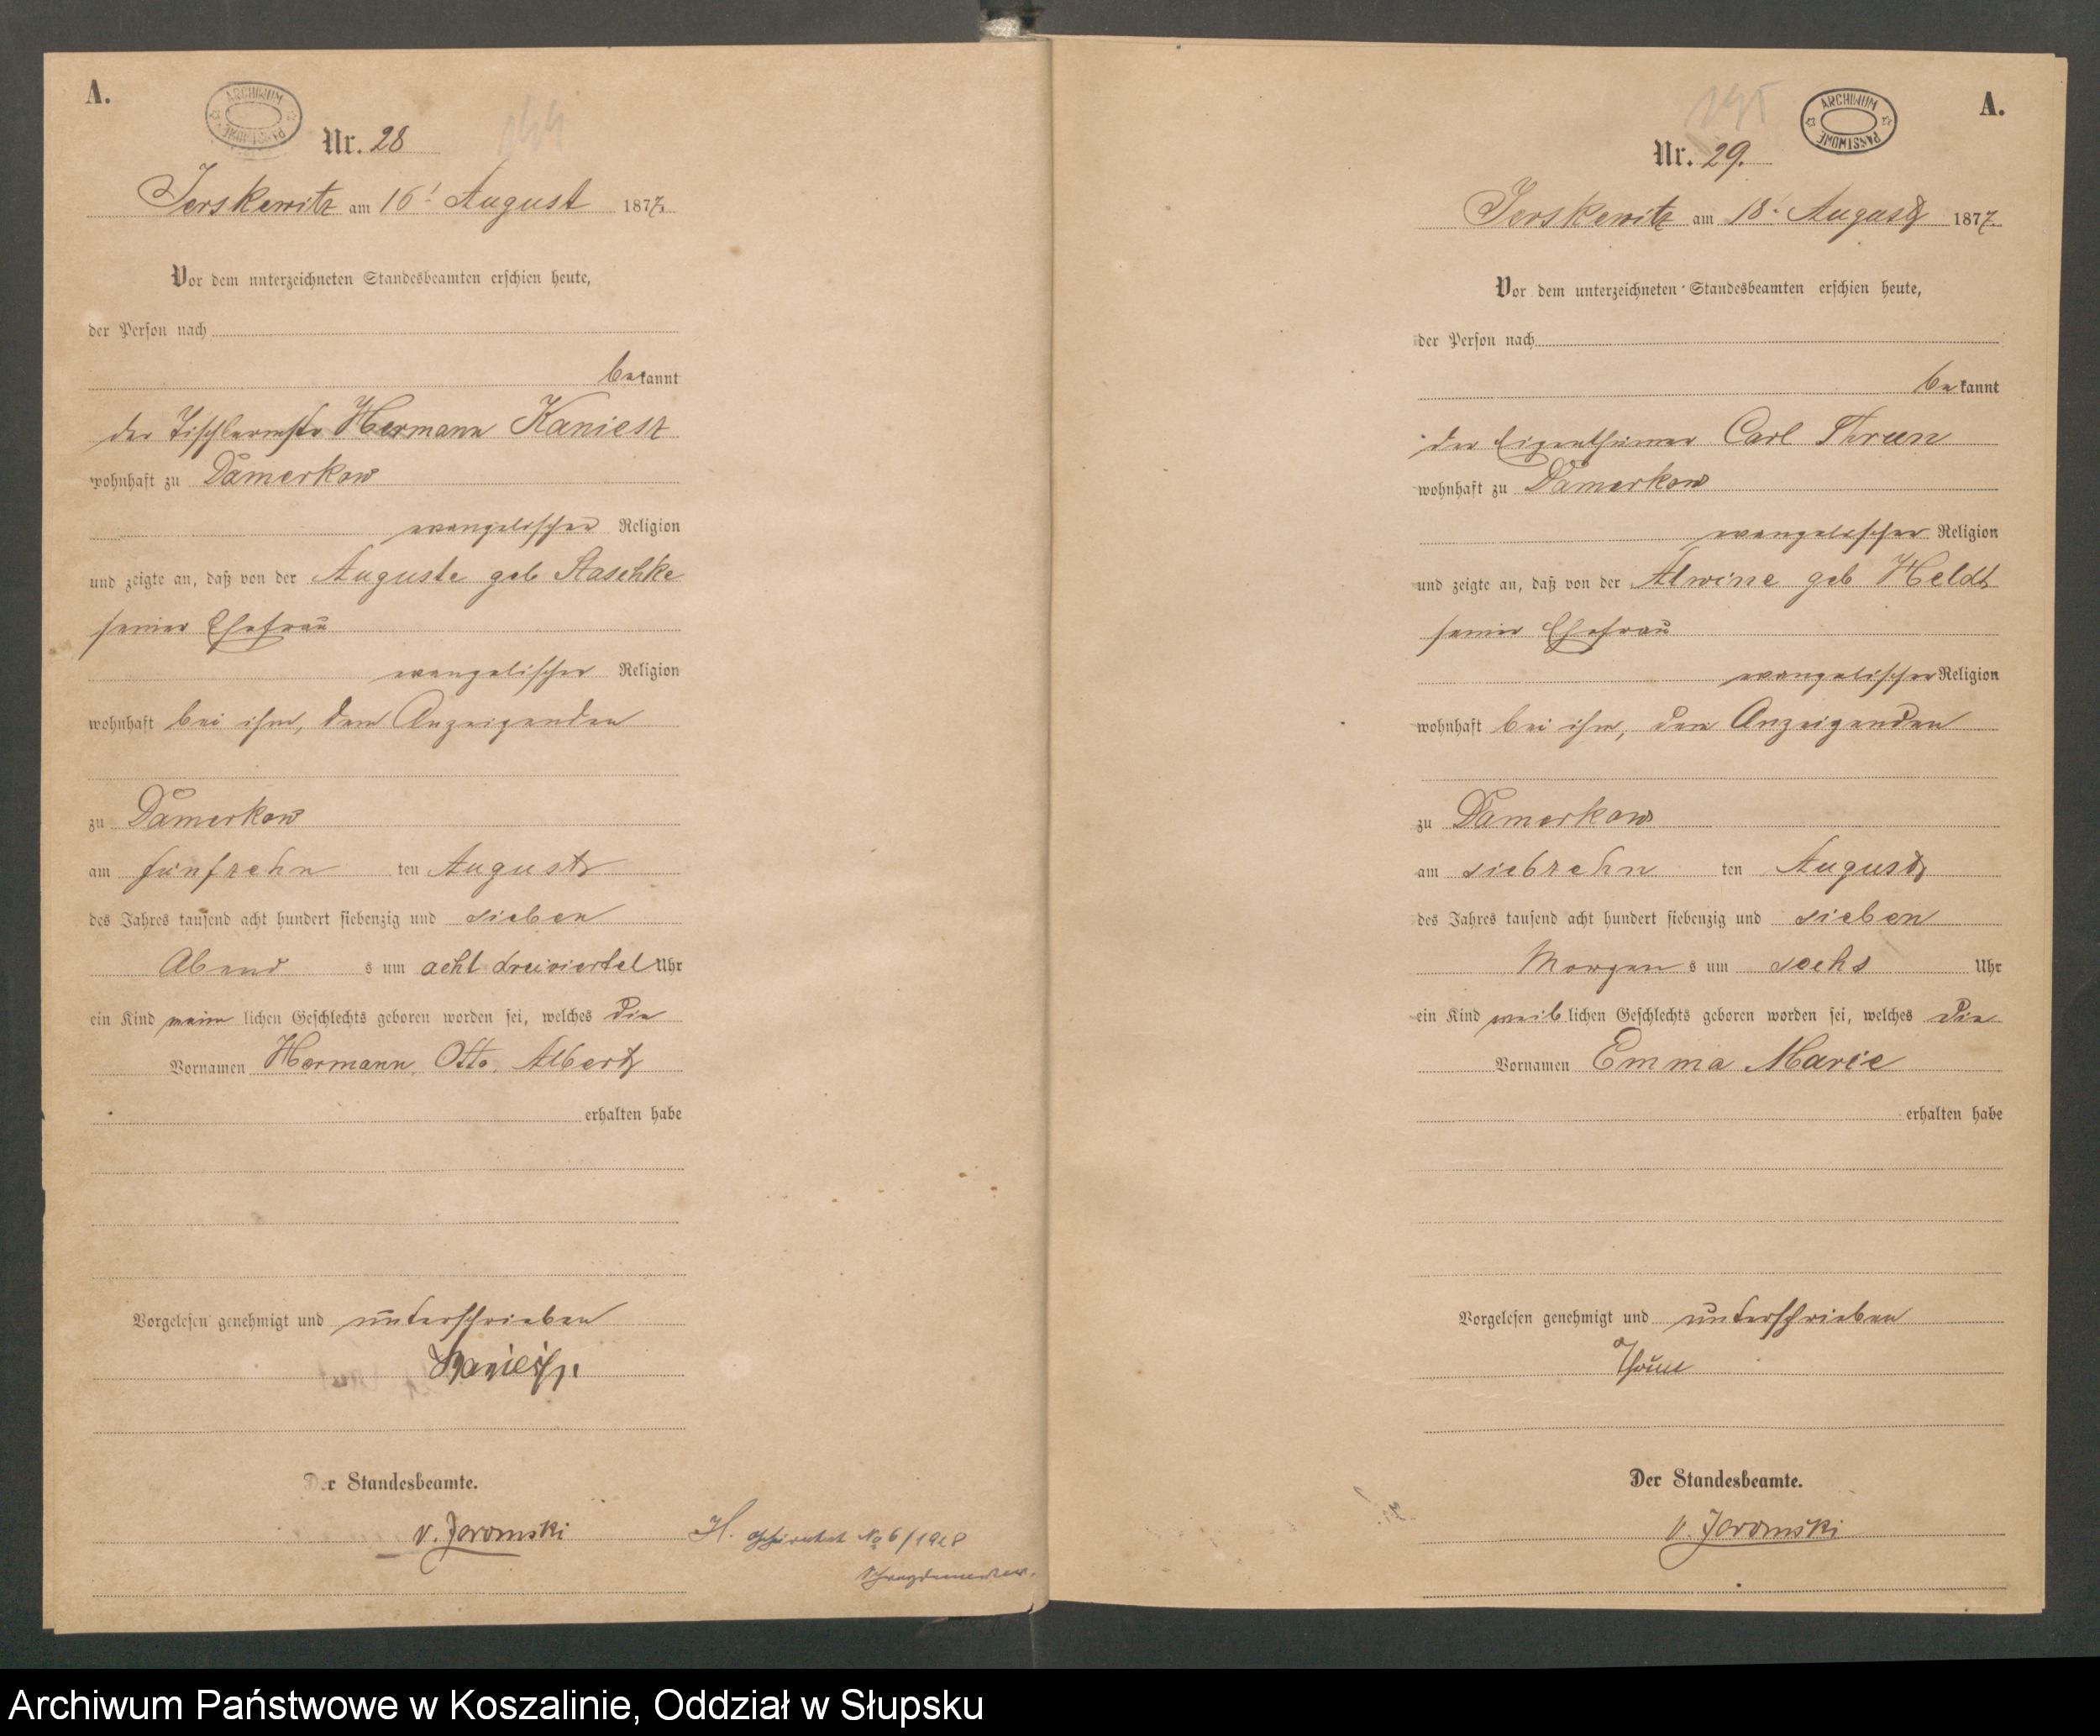 A.
ARCHIWUM PAŃSTWOWE
Nr. 28
Jerskewitz am 16t August 1877.
Vor dem unterzeichneten Standesbeamten erschien heute,
der Person nach
bekannt
der Tischlermstr Hermann Kaniesz
wohnhaft zu Damerkow
evangelischer Religion
und zeigte an, daß von der Auguste geb Staschke
seiner Ehefrau
evangelischer Religion
wohnhaft bei ihm, dem Anzeigenden
zu Damerkow
am fünfzehn ten August
des Jahres tausend acht hundert siebenzig und sieben
Abend s um acht dreiviertel Uhr
ein Kind männ lichen Geschlechts geboren worden sei, welches die
Vornamen Hermann, Otto, Albert
erhalten habe
Vorgelesen genehmigt und unterschrieben
Der Standesbeamte.
v. Jaromski
H. No 6/1928
A.
ARCHIWUM PAŃSTWOWE
Nr. 29.
Jerskewitz am 18t August 1877.
Vor dem unterzeichneten Standesbeamten erschien heute,
der Person nach
bekannt
der Eigenthümer Carl Thrun
wohnhaft zu Damerkow
evangelischer Religion
und zeigte an, daß von der Alwine geb Heldt
seiner Ehefrau
evangelischer Religion
wohnhaft bei ihm, dem Anzeigenden
zu Damerkow
am siebzehn ten August
des Jahres tausend acht hundert siebenzig und sieben
Morgen s um sechs Uhr
ein Kind weib lichen Geschlechts geboren worden sei, welches die
Vornamen Emma Marie
erhalten habe
Vorgelesen genehmigt und unterschrieben
Der Standesbeamte.
v. Jaromski
Archiwum Państwowe w Koszalinie, Oddział w Słupsku